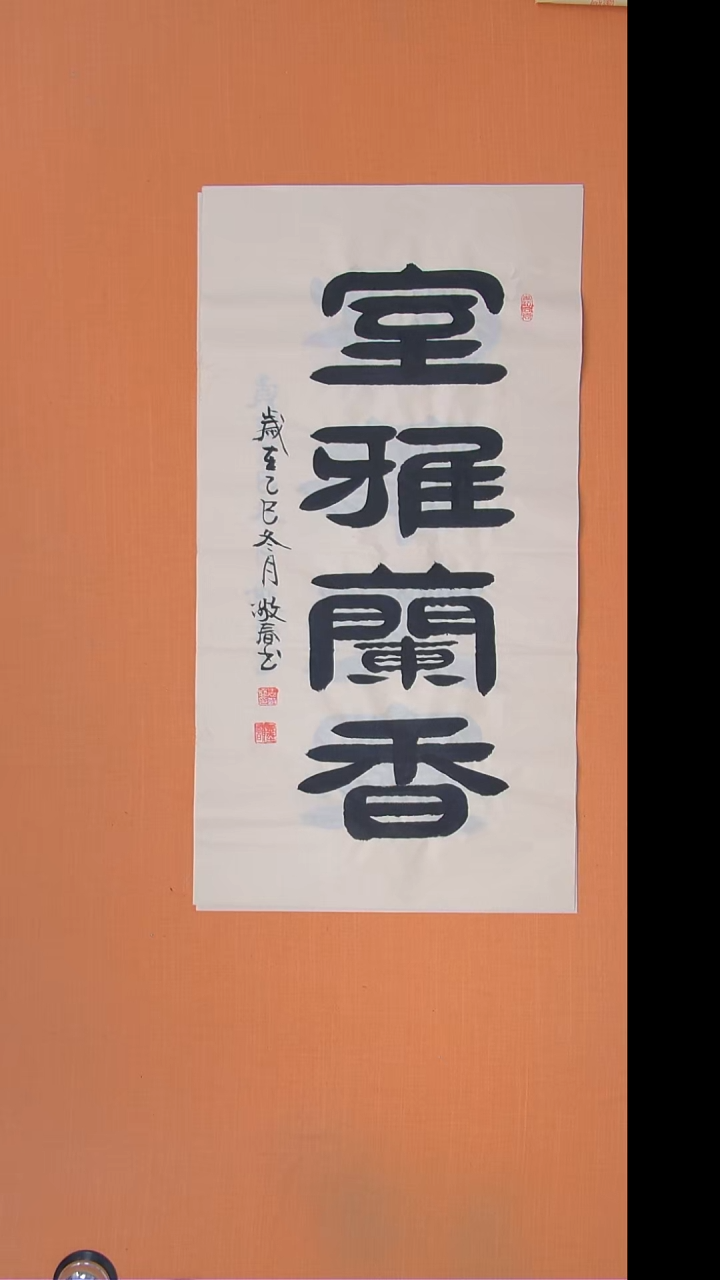 室雅蘭香
歲在乙巳冬月敬春书